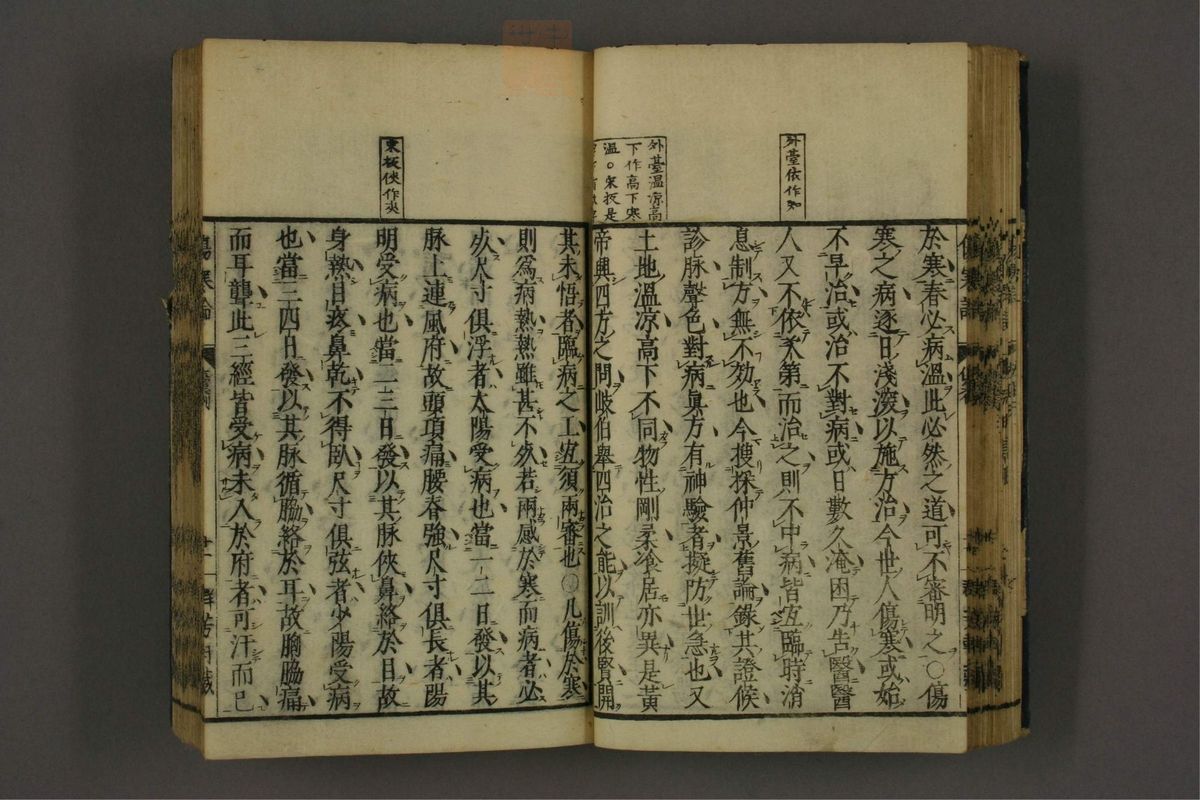 外臺依作知
外臺溫凉高
下作高下寒
溫○宋板是
於寒春必病溫此必然之道可不審明之○傷
寒之病逐日淺深以施方治今世人傷寒或始
不早治或治不對病或日數久淹困乃告醫醫
人又不依次第而治之則不中病皆宜臨時消
息制方無不効也今搜採仲景舊論錄其證候
診脉聲色對病眞方有神驗者擬防世急也又
土地溫凉高下不同物性剛柔飡居亦異是黃
帝興四方之問岐伯舉四治之能以訓後賢開
東板俠作夾
其未悟者臨病之工宜須兩審也○凡傷於寒
則爲病熱熱雖甚不死若兩感於寒而病者必
死尺寸俱浮者太陽受病也當一二日發以其
脉上連風府故頭項痛腰脊強尺寸俱長者陽
明受病也當二三日發以其脉俠鼻絡於目故
身熱目疼鼻乾不得臥尺寸俱弦者少陽受病
也當三四日發以其脉循脇絡於耳故胸脇痛
而耳聾此三經皆受病未入於府者可汗而已
傷寒論